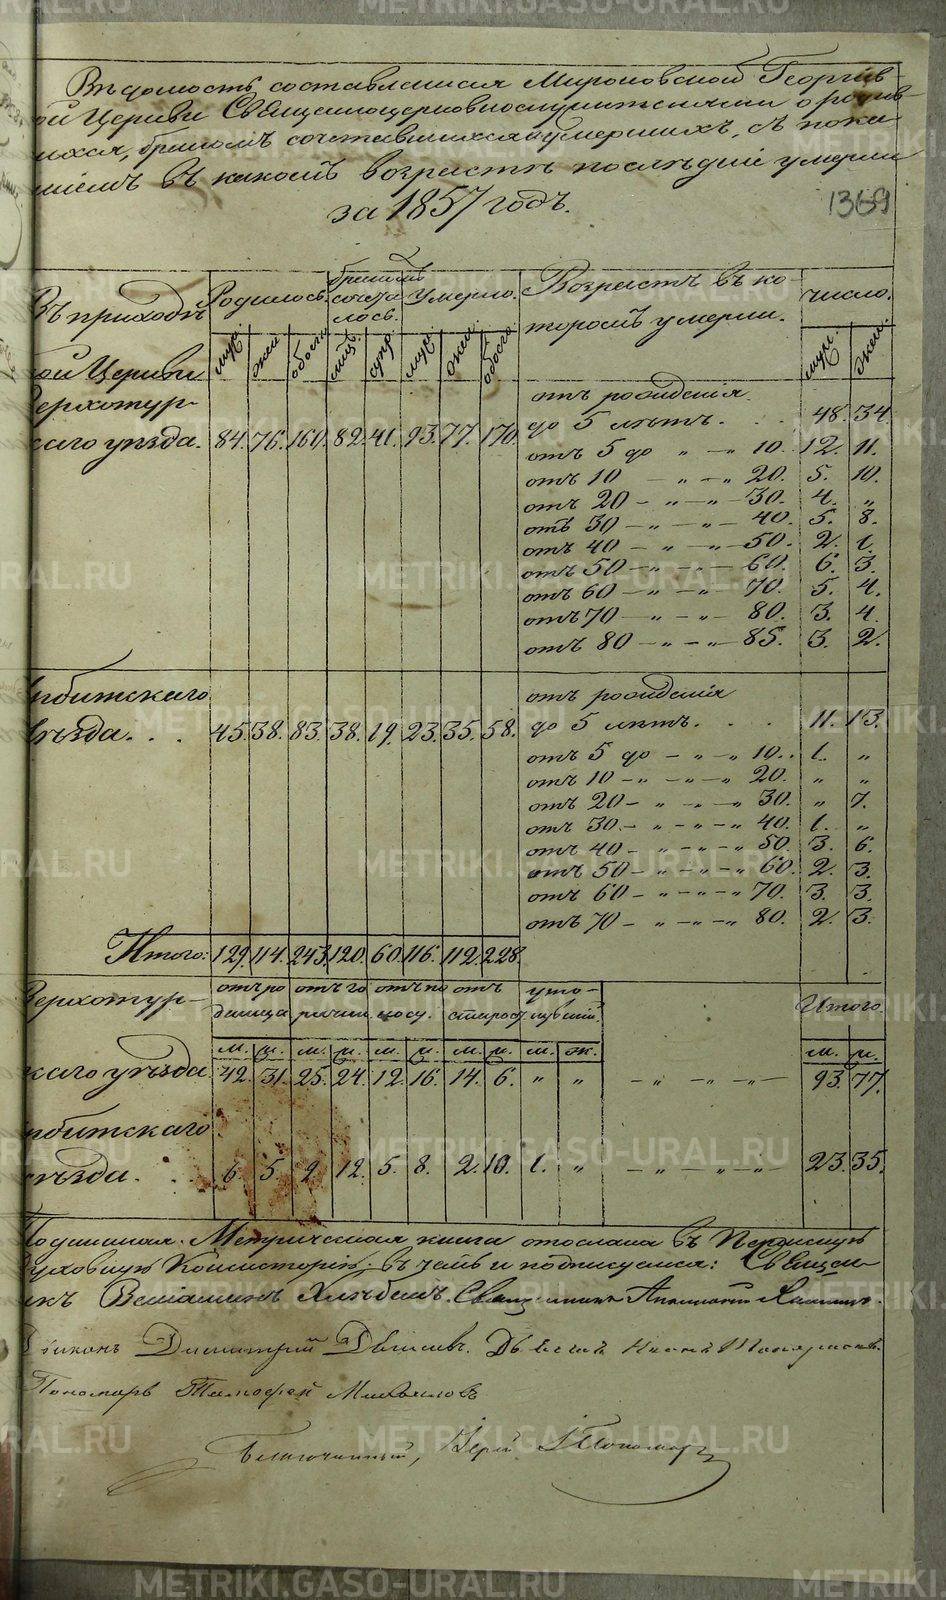 Вѣдомость составленная Мироновской Георгіев-
ой Церкви Священноцерковнослужителями о родив-
шихся, бракомъ сочетавшихся и умершихъ, съ пока-
ніемъ въ какомъ возрастѣ послѣдніе умерли
за 1857 годъ.
1369
Въ приходѣ Родилось. бракомъ сочета лось. Умерло. Возрастъ въ ко- торомъ умерли. число.
муж. жен. обоего лицъ. супр. муж. жен. обоего муж. жен.
ой Церкви
Верхотур-
скаго уѣзда. 84. 76. 160. 82. 41. 93. 77. 170.
отъ рожденія
до 5 лѣтъ. . . . 48. 34.
отъ 5 до „ — „ 10. 12. 11.
отъ 10 — „ — „ 20. 5. 10.
отъ 20 — „ — „ — 30. 4. „
отъ 30 — „ — „ 40. 5. 8.
отъ 40 — „ — „ — 50. 2. 1.
отъ 50 — „ — „ — 60. 6. 3.
отъ 60 — „ — „ — 70. 5. 4.
отъ 70 — „ — „ 80. 3. 4.
отъ 80 — „ — „ 85. 3. 2.
рбитскаго
уѣзда. . . 45. 38. 83. 38. 19. 23. 35. 58.
отъ рожденія
до 5 лѣтъ. . . . 11. 13.
отъ 5 до — „ — „ 10. . 1. „
отъ 10 — „ — „ — „ 20. „ „
отъ 20 — „ — „ — 30. „ 7.
отъ 30. — „ — „ — „ 40. 1. „
отъ 40 — „ — „ — „ 50. 3. 6.
отъ 50 — „ — „ — „ 60. 2. 3.
отъ 60 — „ — „ — „ 70. 3. 3.
отъ 70 — „ — „ — „ 80. 2. 3.
Итого: 129. 114. 243. 120. 60. 116. 112. 228.
Верхотур- отъ ро димца отъ го рячки отъ по носу. отъ старос. уто- нувшій Итого
м. ж. м. ж. м. ж. м. ж. м. ж. м. ж.
скаго уѣзда 42. 31. 25. 24. 12. 16. 14. 6. „ „ — „ — „ — „ — 93. 77.
рбитскаго
уѣзда. . . 6. 5. 9. 12. 5. 8. 2. 10. 1. „ — „ — „ — „ — 23. 35.
Подлинная Метрическая книга отослана въ Пермскую
Духовную Консисторію. въ чемъ и подписуемся: Священ-
икъ Веніаминъ Хлѣбинъ. Священникъ
Діаконъ Димитрій Дьячій Иванъ
Пономарь Тимофей Михайловъ
Благочинный, Іерей І Пономарев
METRIKI.GASO-URAL.RU